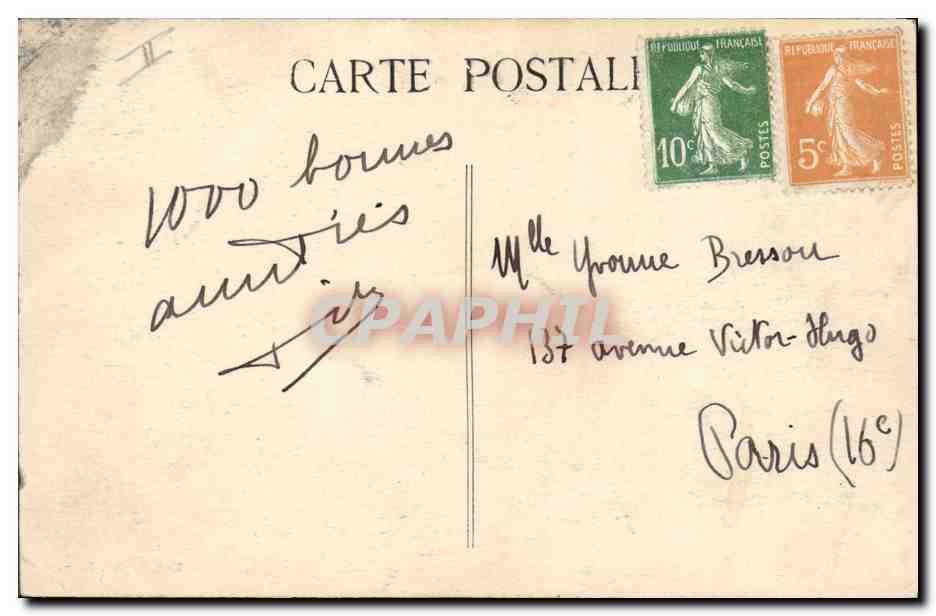 II
CARTE POSTALE
REPUBLIQUE FRANÇAISE
10c
POSTES
REPUBLIQUE FRANÇAISE
5c
POSTES
1000 bonnes
Mlle Yvonne Bresson
137 avenue Victor-Hugo
Paris (16e)
CPAPHIL